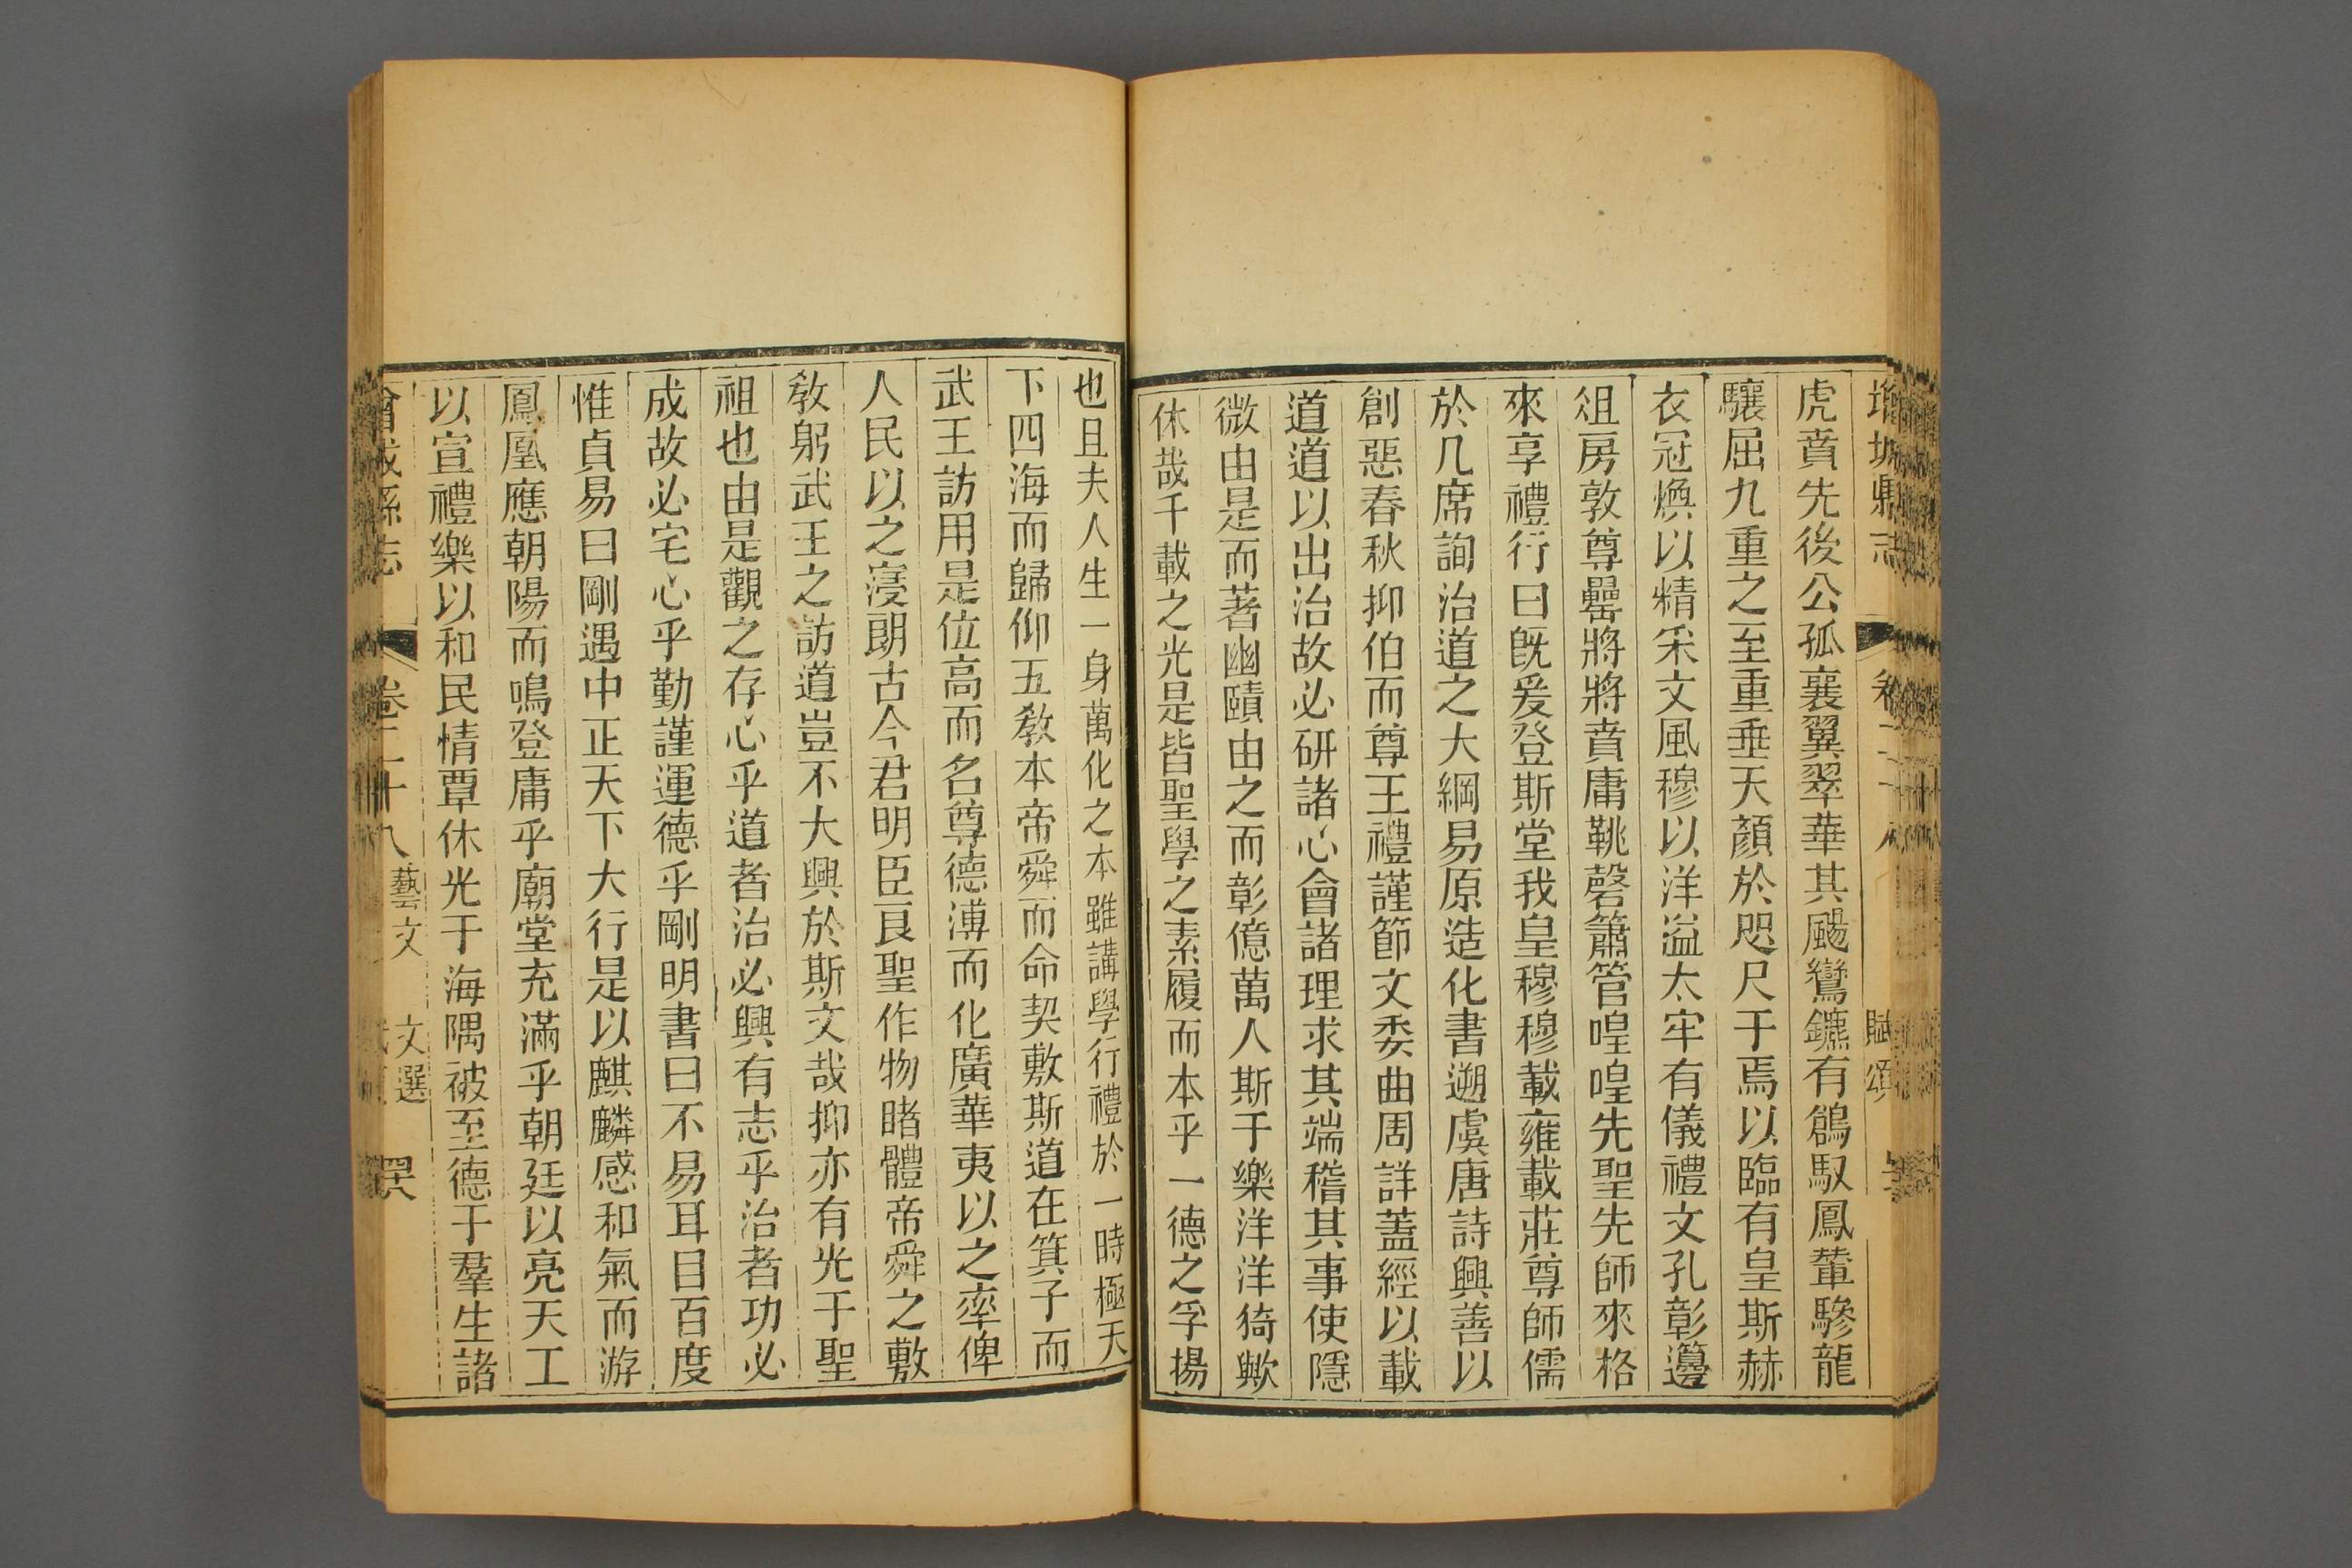 增城縣志 卷二十八 賦頌
虎賁先後公孤襄翼翠華其颺鸞鑣有鶬馭鳳輦驂龍
驤屈九重之至重垂天顏於咫尺于焉以臨有皇斯赫
衣冠煥以精采文風穆以洋溢太牢有儀禮文孔彰籩
俎房敦尊罍將將賁庸鞉磬簫管喤喤先聖先師來格
來享禮行曰旣爰登斯堂我皇穆穆載雍載莊尊師儒
於几席詢治道之大綱易原造化書遡虞唐詩興善以
創惡春秋抑伯而尊王禮謹節文委曲周詳蓋經以載
道道以出治故必研諸心會諸理求其端稽其事使隱
微由是而著幽賾由之而彰億萬人斯于樂洋洋猗歟
休哉千載之光是皆聖學之素履而本乎一德之孚揚
也且夫人生一身萬化之本雖講學行禮於一時極天
下四海而歸仰五敎本帝舜而命契敷斯道在箕子而
武王訪用是位高而名尊德溥而化廣華夷以之率俾
人民以之寖朗古今君明臣良聖作物睹體帝舜之敷
敎躬武王之訪道豈不大興於斯文哉抑亦有光于聖
祖也由是觀之存心乎道者治必興有志乎治者功必
成故必宅心乎勤謹運德乎剛明書曰不易耳目百度
惟貞易曰剛遇中正天下大行是以麒麟感和氣而游
鳳凰應朝陽而鳴登庸乎廟堂充滿乎朝廷以亮天工
以宣禮樂以和民情覃休光于海隅被至德于羣生諸
增城縣志 卷二十八 藝文 文選